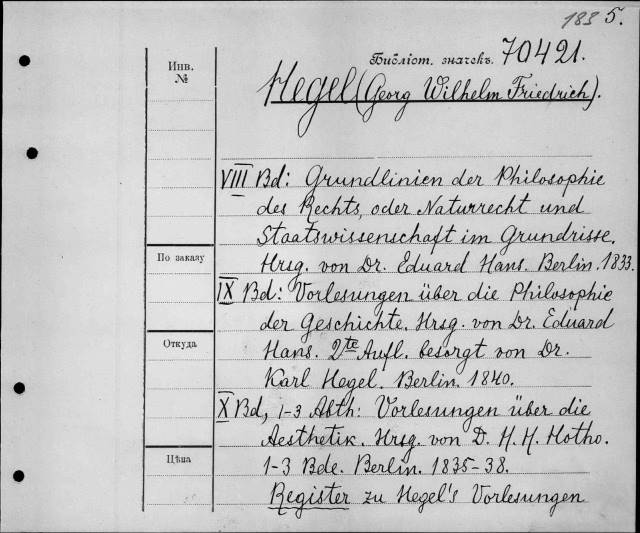 183 5.
Библіот. значекъ. 70421.
Инв.
№
Hegel (Georg Wilhelm Friedrich).
VIII Bd: Grundlinien der Philosophie
des Rechts, oder Naturrecht und
Staatswissenschaft im Grundrisse.
По заказу
Hrsg. von Dr. Eduard Hans. Berlin. 1833.
IX Bd: Vorlesungen über die Philosophie
der Geschichte. Hrsg. von Dr. Eduard
Откуда
Hans. 2te Aufl. besorgt von Dr.
Karl Hegel. Berlin. 1840.
X Bd, 1-3 Abth: Vorlesungen über die
Aesthetik. Hrsg. von D. H. H. Hotho.
Цѣна
1-3 Bde. Berlin. 1835-38.
Register zu Hegel's Vorlesungen